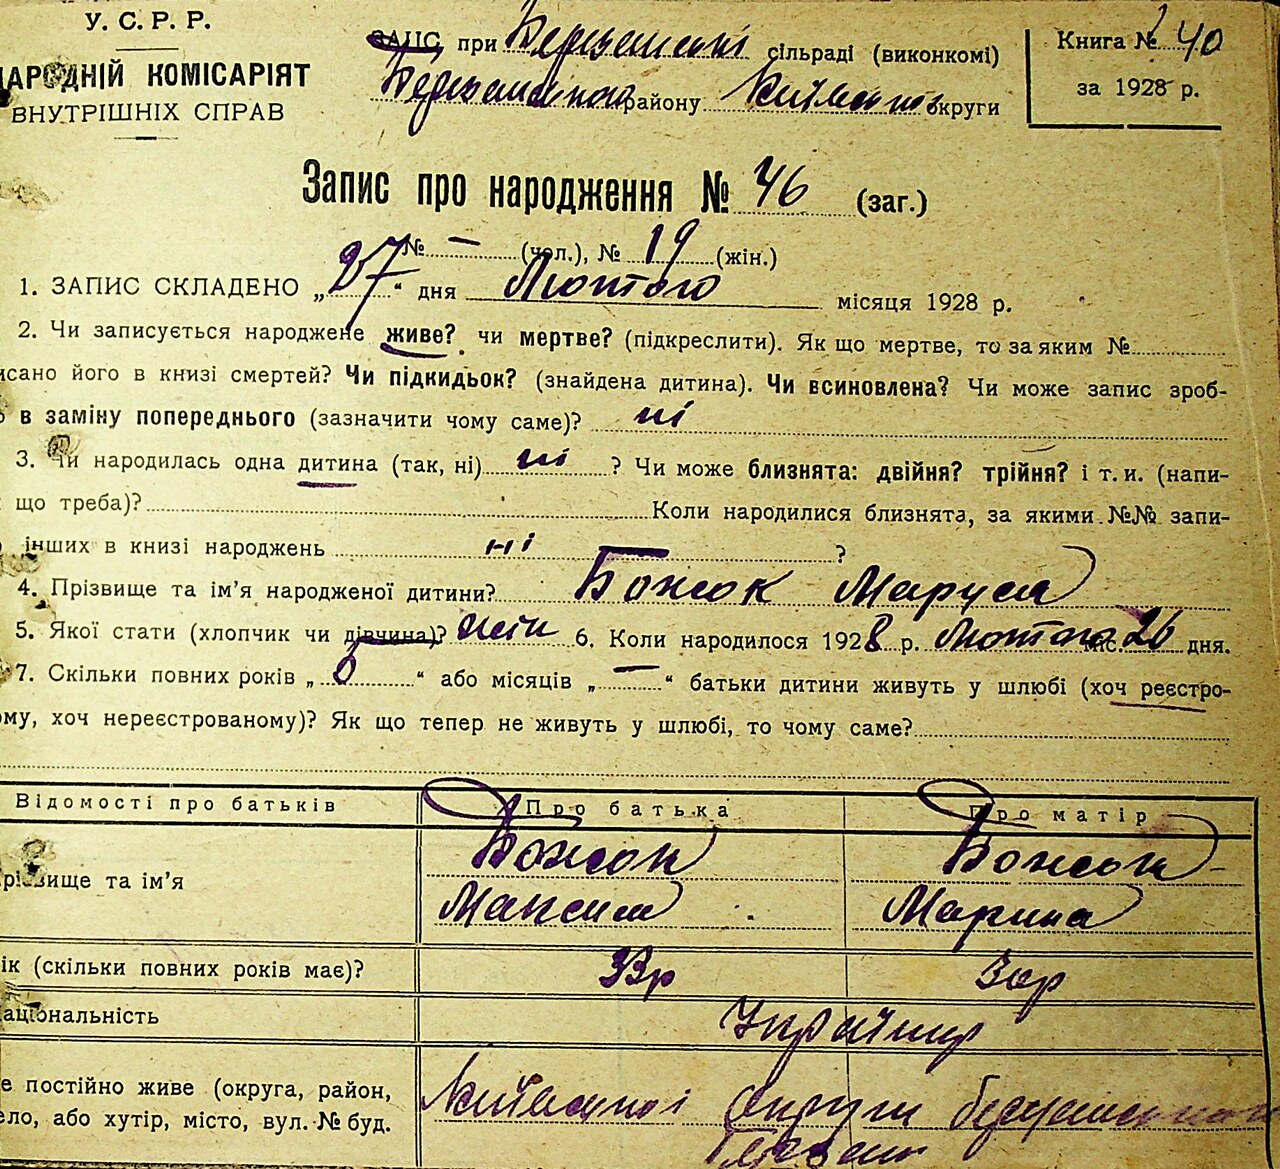 У. С. Р. Р.
НАРОДНІЙ КОМІСАРІЯТ
ВНУТРІШНІХ СПРАВ
ЗАПИС при Березанській сільраді (виконкомі)
Березанського району Київської округи
Книга № 40
за 1928 р.
Запис про народження № 46 (заг.)
№ — (чол.), № 19 (жін.)
1. ЗАПИС СКЛАДЕНО „27“ дня Лютого місяця 1928 р.
2. Чи записується народжене живе? чи мертве? (підкреслити). Як що мертве, то за яким №
исано його в книзі смертей? Чи підкидьок? (знайдена дитина). Чи всиновлена? Чи може запис зроб-
в заміну попереднього (зазначити чому саме)? ні
3. Чи народилась одна дитина (так, ні) ні ? Чи може близнята: двійня? трійня? і т. и. (напи-
що треба)? Коли народилися близнята, за якими №№ запи-
інших в книзі народжень ні ?
4. Прізвище та ім’я народженої дитини? Божок Маруся
5. Якої стати (хлопчик чи дівчина)? жін 6. Коли народилося 1928 р. Лютого міс. 26 дня.
7. Скільки повних років „ 6 “ або місяців „ — “ батьки дитини живуть у шлюбі (хоч реєстро-
ому, хоч нереєстрованому)? Як що тепер не живуть у шлюбі, то чому саме?
Відомості про батьків Про батька Про матір
Прізвище та ім’я Божок Божок
Максим Марина
ік (скільки повних років має)? 33р 30р
Національність Українці
е постійно живе (округа, район, Київської округи
ело, або хутір, місто, вул. № буд.